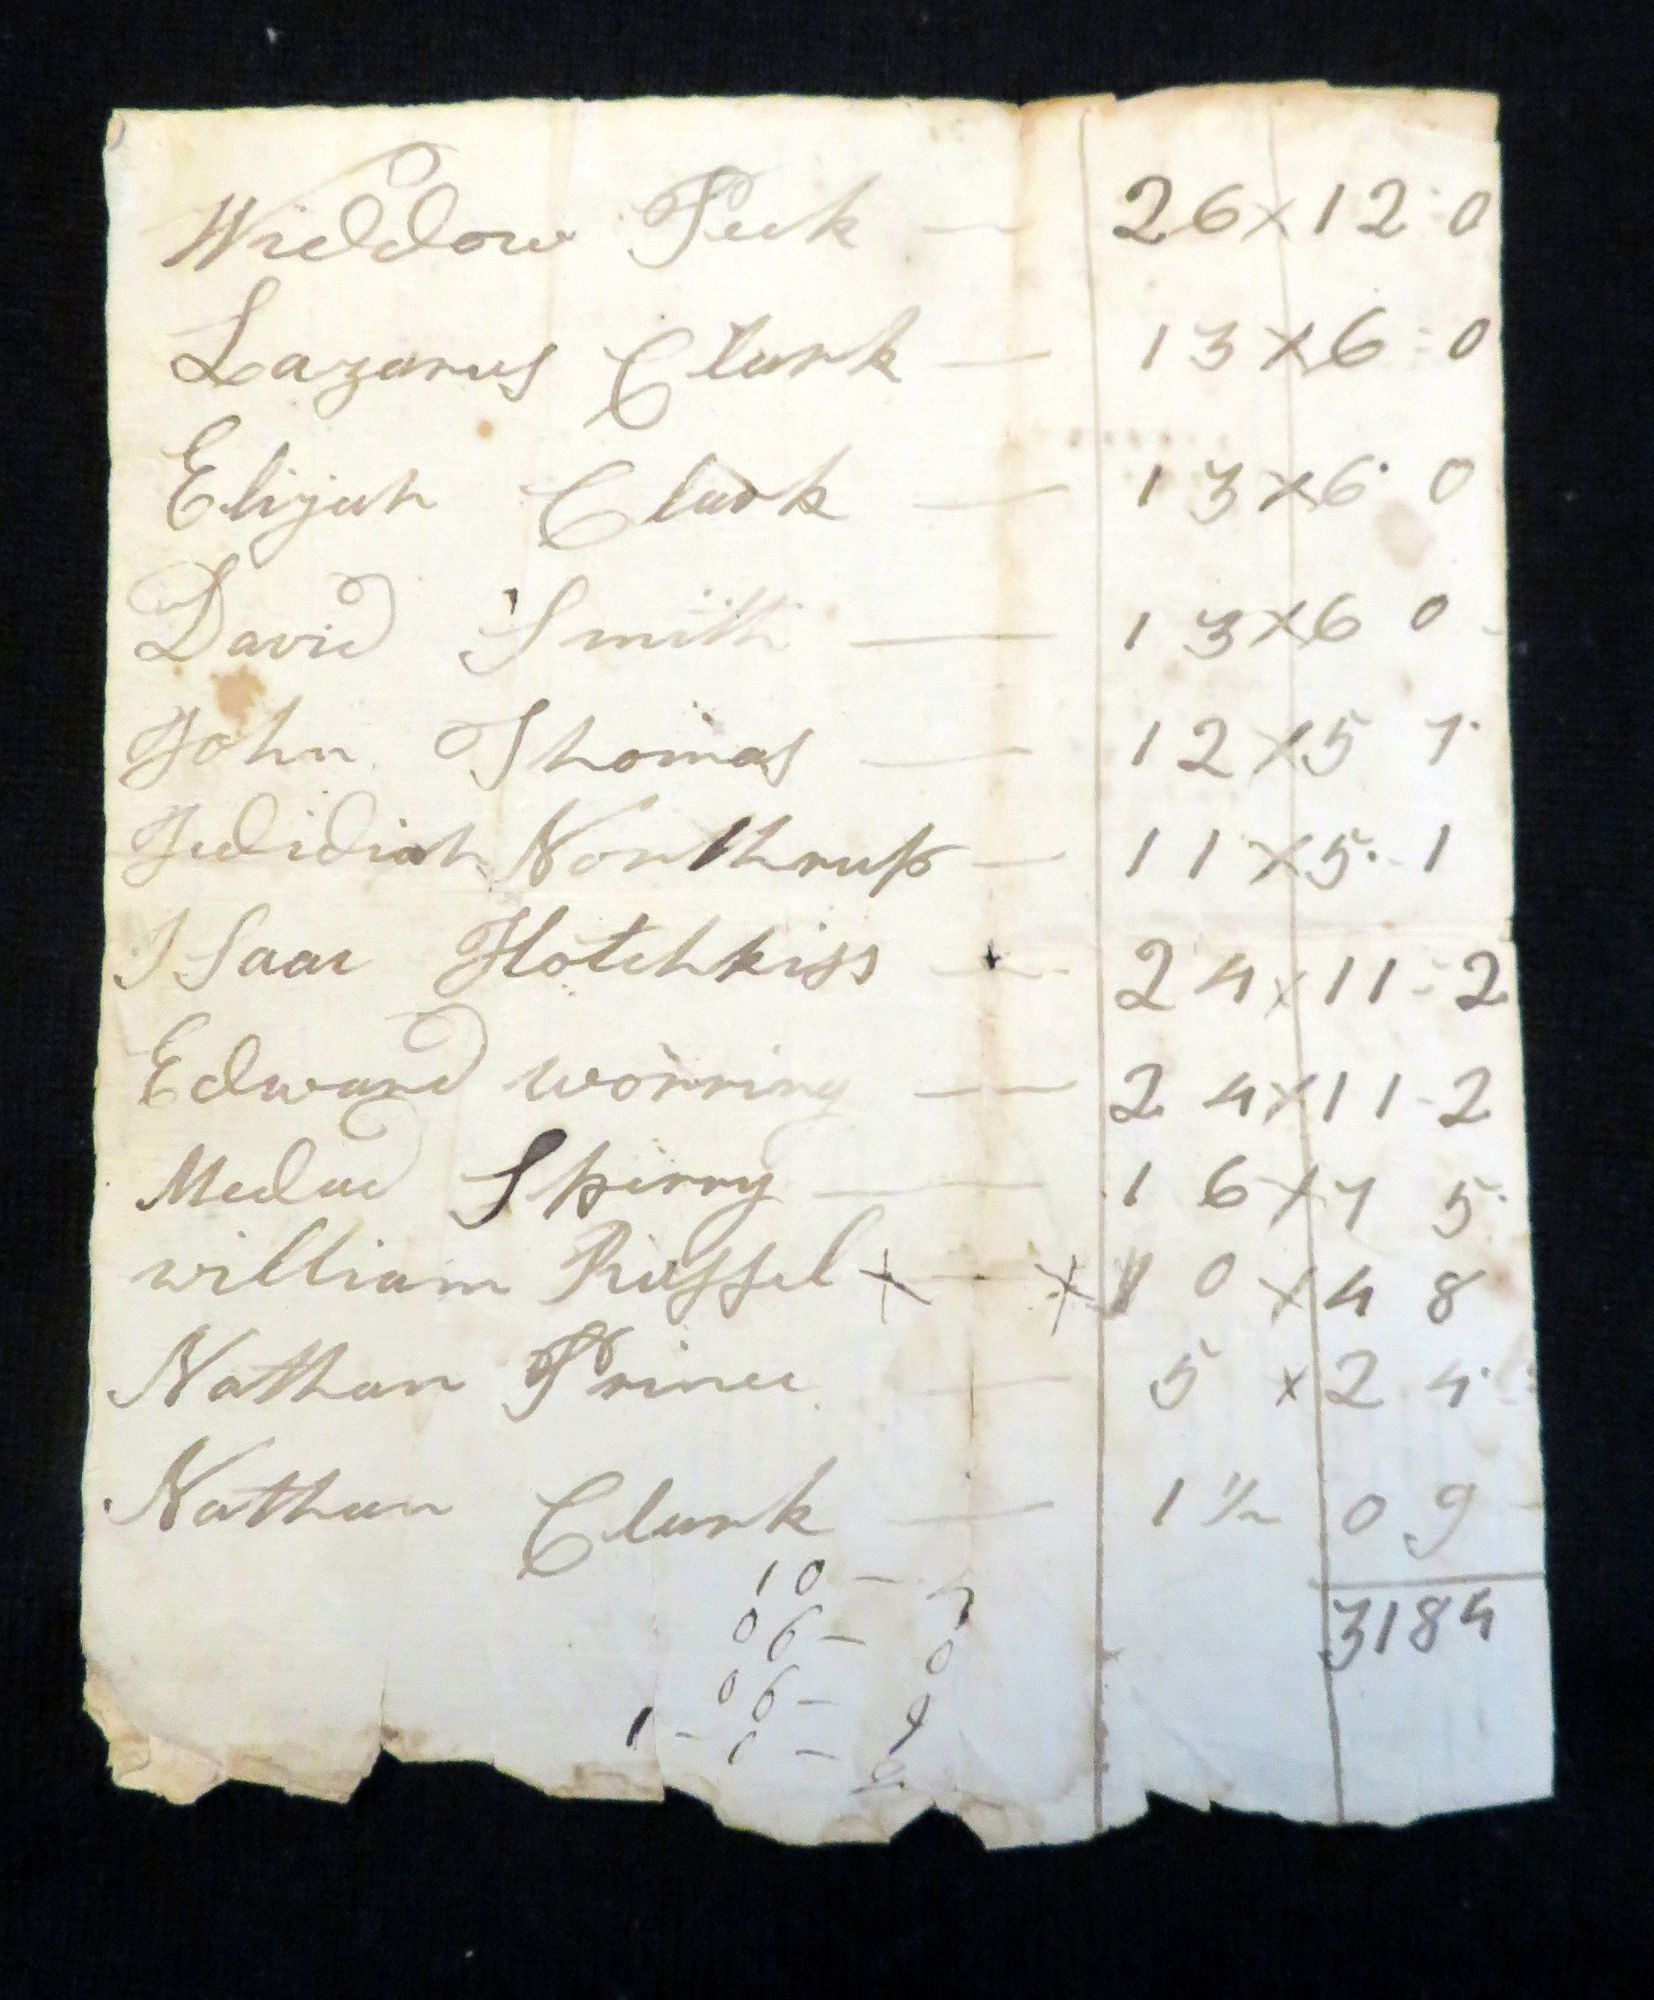 Widdow Peck — 26 x 12 - 0
Lazarus Clark — 13 x 6 - 0
Elijah Clark — 13 x 6 0
David Smith — 13 x 6 0
John Thomas — 12 x 5 7
Jedidiah Northrup — 11 x 5 - 1
Isaac Hotchkiss — 24 x 11 - 2
Edward worring — 24 x 11 - 2
Medad Sperry — 16 x 7 5
william Russel x — x 10 x 4 8
Nathan Prince — 5 x 2 4
Nathan Clark — 1 1/2 0 9
10 - 7
3184
06 - 0
06 - 9
1 - 1 -